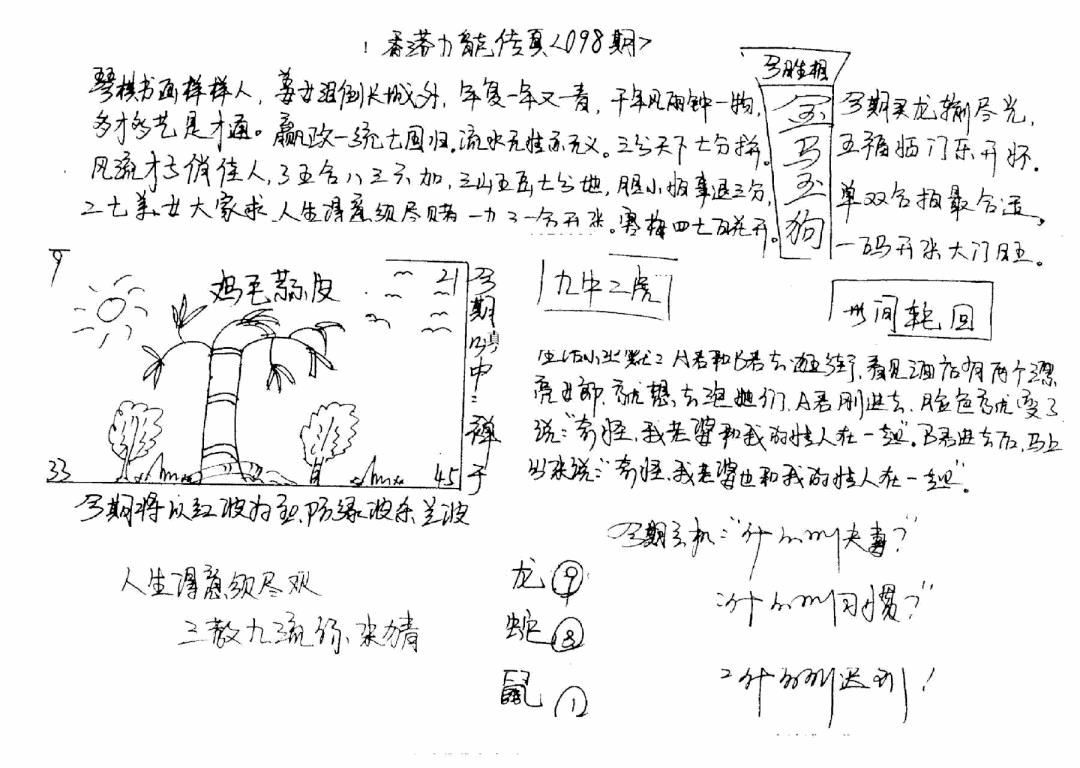 香港力能传真<098期>
琴棋书画样样人，姜女泪倒长城外，年复一年又一春，千年风雨钟一物，
多才多艺是才通。赢政一统七国归，流水无性亦无义。三分天下七分拚。
风流才子俏佳人，了五合八三六加，三山五岳七分地，胆小怕事退三分，
二七美女大家求 人生得意须尽赌 一九三一合开来。寒梅四七百花开。
今期买龙输尽光，
五福临门乐开怀。
单双合拍最合适，
一码开来大门旺。
今胜相
金马玉狗
9
21
33
45
鸡毛蒜皮
今期顺中：禅子
九中二虎
世间轮回
A君和B君去逛街，看见酒店有两个漂
亮女郎，就想去泡她们，A君刚进去，脸色就变了
说：“奇怪，我老婆和我的性人在一起”。B君进去后，马上
出来说：“奇怪，我老婆也和我的性人在一起”。
今期将以红波为主，防绿波杀兰波
人生得意须尽欢
三教九流
龙 9
蛇 8
鼠 1
今期玄机：“什么叫夫毒？”
“什么叫习惯？”
什么叫迟到！